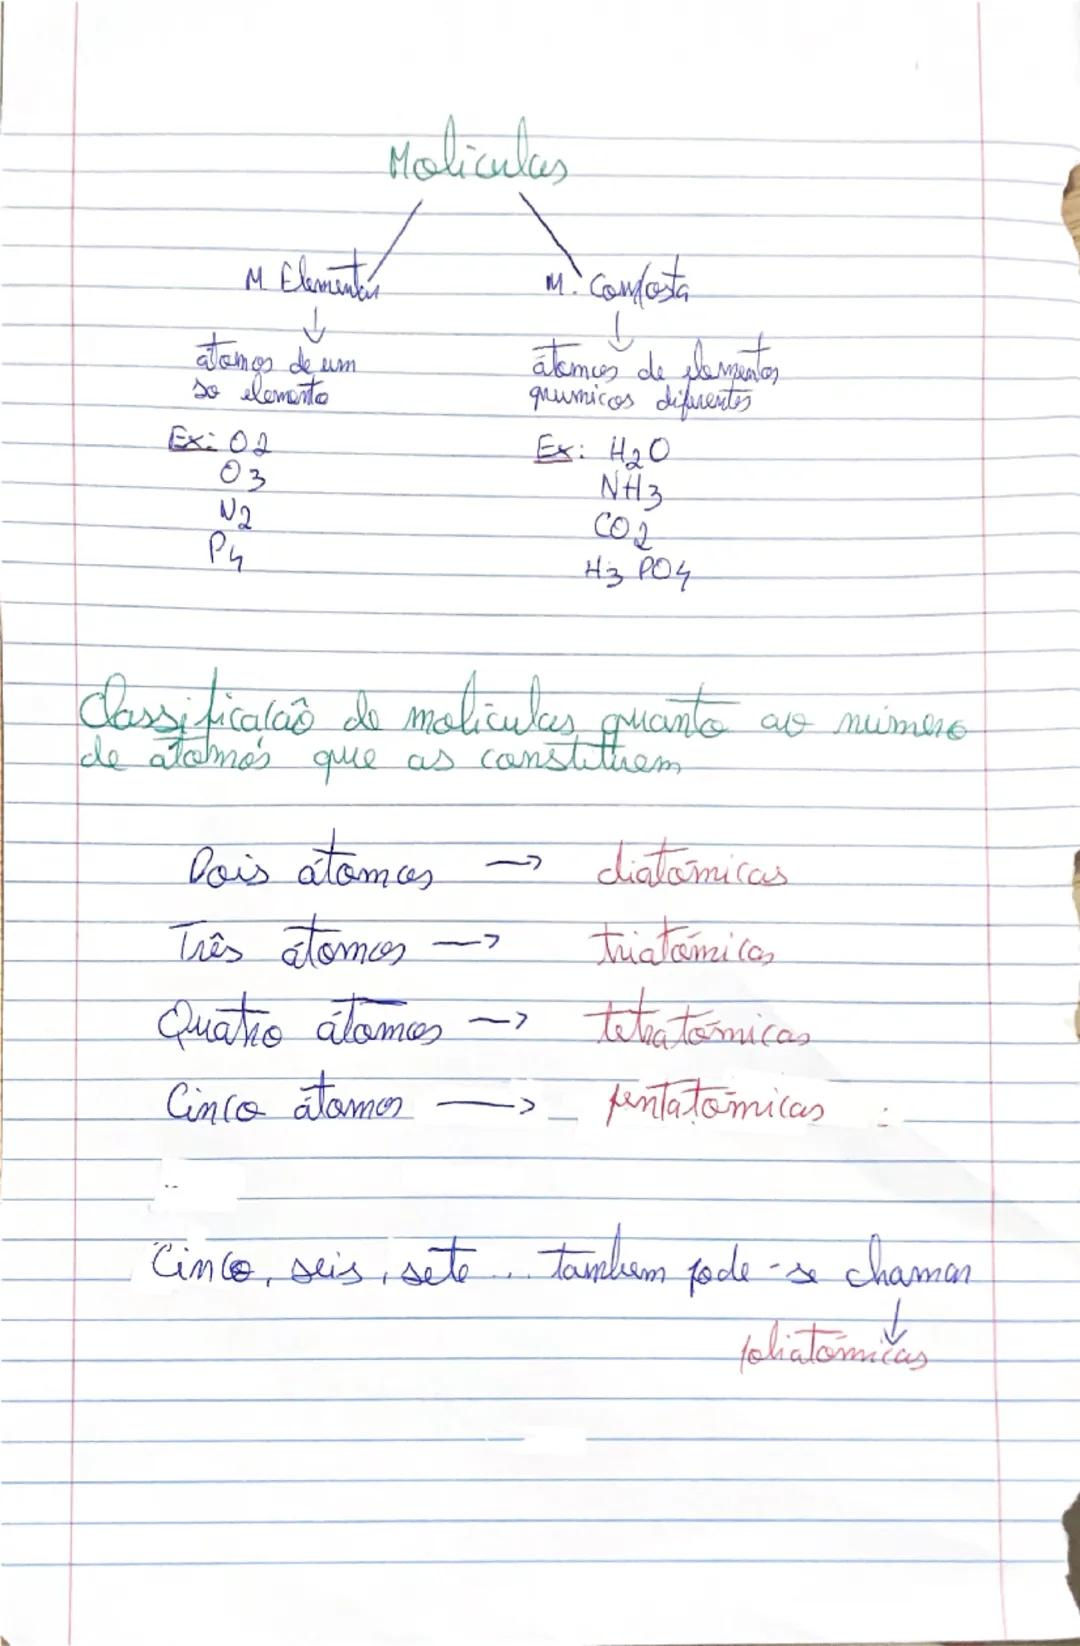 Moliculas
M. Elementar M. Composta
↓ ↓
átomos de um átomos de elementos
so elemento quumicos diferentes
Ex: O2 Ex: H2O
O3 NH3
N2 CO2
P4 H3 PO4
Classificação de moliculas quanto ao número
de átomos que as constituem
Dois átomos → diatómicas
Três átomos → triatómicas
Quatro átomos → tetratómicas
Cinco átomos → pentatómicas
Cinco, seis, sete ... tambem pode-se chamar
↓
poliatómicas